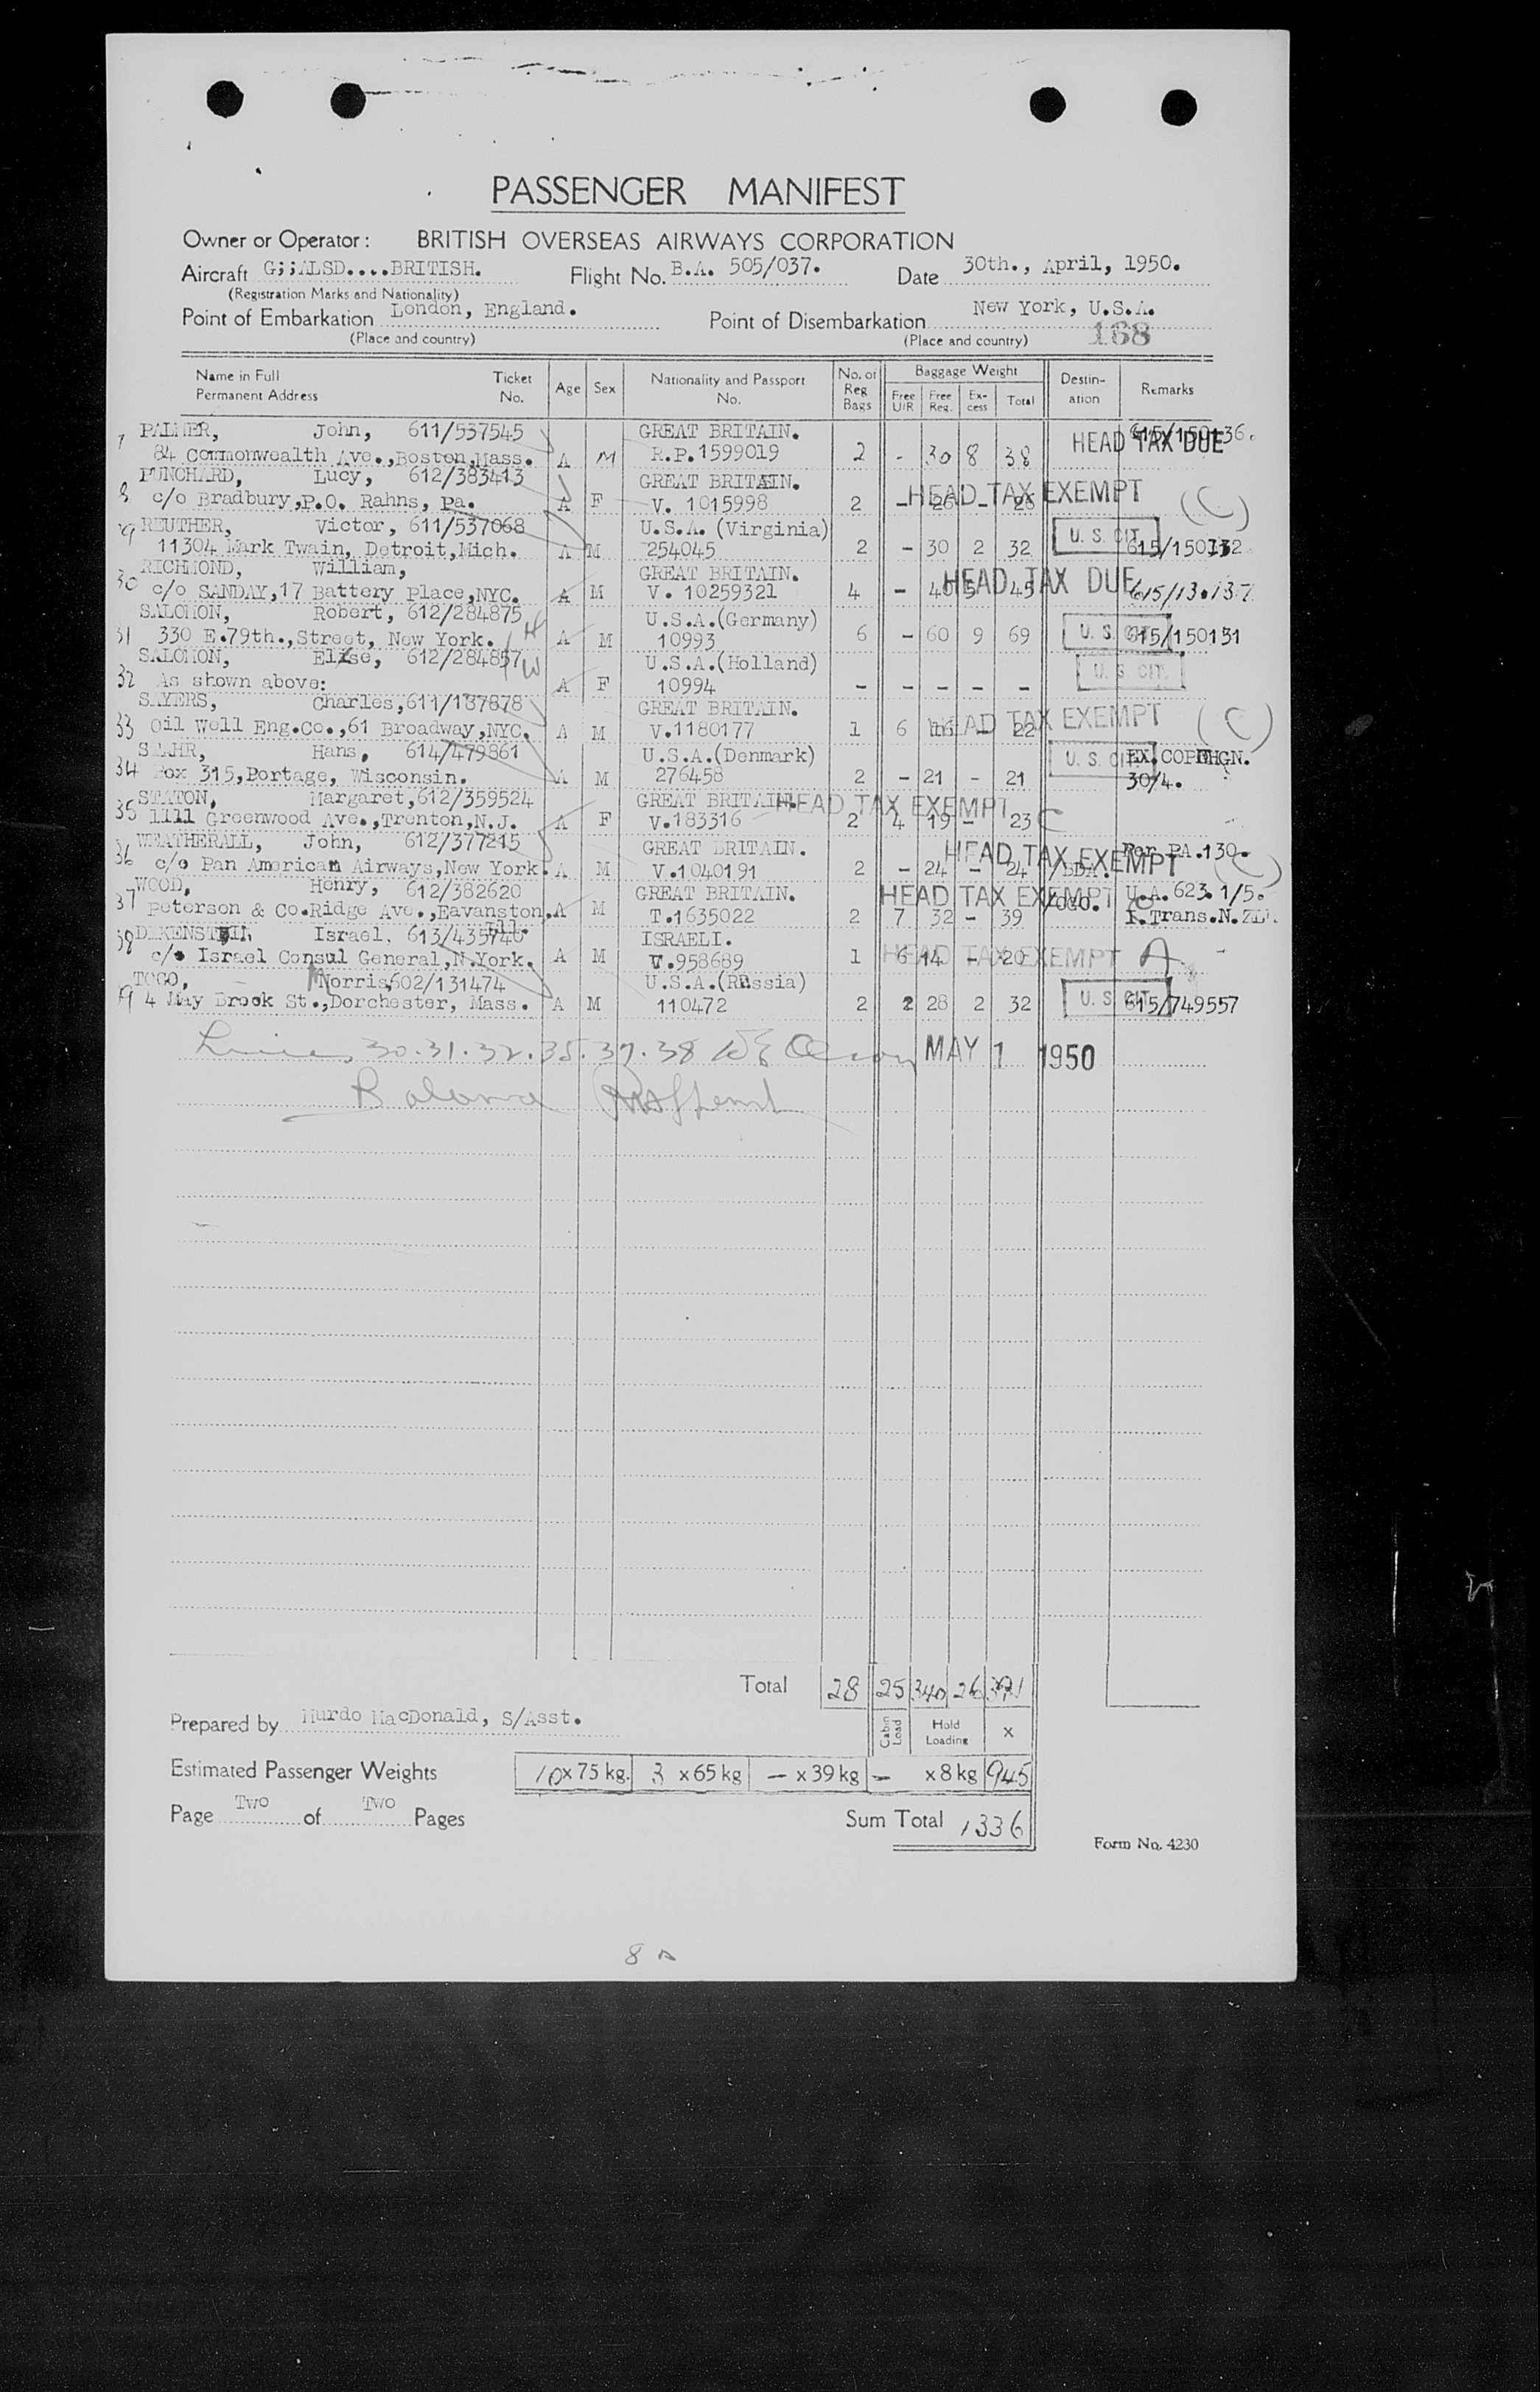 PASSENGER MANIFEST
Owner or Operator: BRITISH OVERSEAS AIRWAYS CORPORATION
Aircraft G;;ALSD....BRITISH. Flight No. B.A. 505/037. Date 30th., April, 1950.
(Registration Marks and Nationality)
Point of Embarkation London, England. Point of Disembarkation New York, U.S.A.
(Place and country) (Place and country) 168
Name in Full Permanent Address Ticket No. Age Sex Nationality and Passport No. No. of Reg Bags Baggage Weight Free U/R Free Reg. Ex-cess Total Destin-ation Remarks
7 PALMER, John, 611/537545 GREAT BRITAIN. HEAD TAX DUE
84 Commonwealth Ave.,Boston,Mass. A M R.P.1599019 2 - 30 8 38
8 PUNCHARD, Lucy, 612/383413 GREAT BRITAIN. HEAD TAX EXEMPT (C)
c/o Bradbury,P.O. Rahns, Pa. A F V. 1015998 2 - 28 - 28
29 REUTHER, Victor, 611/537068 U.S.A. (Virginia) U. S. CIT.
11304 Mark Twain, Detroit,Mich. A M 254045 2 - 30 2 32 615/150132
30 RICHMOND, William, GREAT BRITAIN. HEAD TAX DUE
c/o SANDAY,17 Battery Place,NYC. A M V. 10259321 4 - 40 5 45 615/13.137
SALOMON, Robert, 612/284875 H U.S.A.(Germany)
31 330 E.79th.,Street, New York. A M 10993 6 - 60 9 69 U. S. CIT. 615/150131
SALOMON, Elise, 612/284857 W U.S.A.(Holland)
32 As shown above: A F 10994 - - - - - U. S. CIT.
SAYERS, Charles,611/137878 GREAT BRITAIN.
33 Oil Well Eng.Co.,61 Broadway,NYC. A M V.1180177 1 6 16 - 22 HEAD TAX EXEMPT (C)
STAHR, Hans, 614/479861 U.S.A.(Denmark) U. S. CIT. EX.COPNHGN.
34 Box 315,Portage, Wisconsin. A M 276458 2 - 21 - 21 30/4.
35 STATON, Margaret,612/359524 GREAT BRITAIN. HEAD TAX EXEMPT C
1111 Greenwood Ave.,Trenton,N.J. A F V.183316 2 4 19 - 23
36 WEATHERALL, John, 612/377215 GREAT BRITAIN. HEAD TAX EXEMPT Per PA.130.
c/o Pan American Airways,New York. A M V.1040191 2 - 24 - 24 /BDA. (C)
37 WOOD, Henry, 612/382620 GREAT BRITAIN. HEAD TAX EXEMPT U.A. 623. 1/5.
Peterson & Co.Ridge Ave.,Eavanston, Ill. A M T.1635022 2 7 32 - 39 C
38 Israel. 613/435740 ISRAELI.
c/o Israel Consul General,N.York. A M V.958689 1 6 14 - 20 HEAD TAX EXEMPT A
TOGO, Morris,602/131474 U.S.A.(Russia)
39 4 May Brook St.,Dorchester, Mass. A M 110472 2 2 28 2 32 U. S. CIT. 615/749557
Lines 30.31.32.35.37.38 MAY 1 1950
Total 28 25 340 26 391
Prepared by Murdo MacDonald, S/Asst. Cabin Load Hold Loading x
Estimated Passenger Weights 10 x 75 kg. 3 x 65 kg - x 39 kg - x 8 kg 945
Page Two of Two Pages Sum Total 1336
Form No. 4230
8